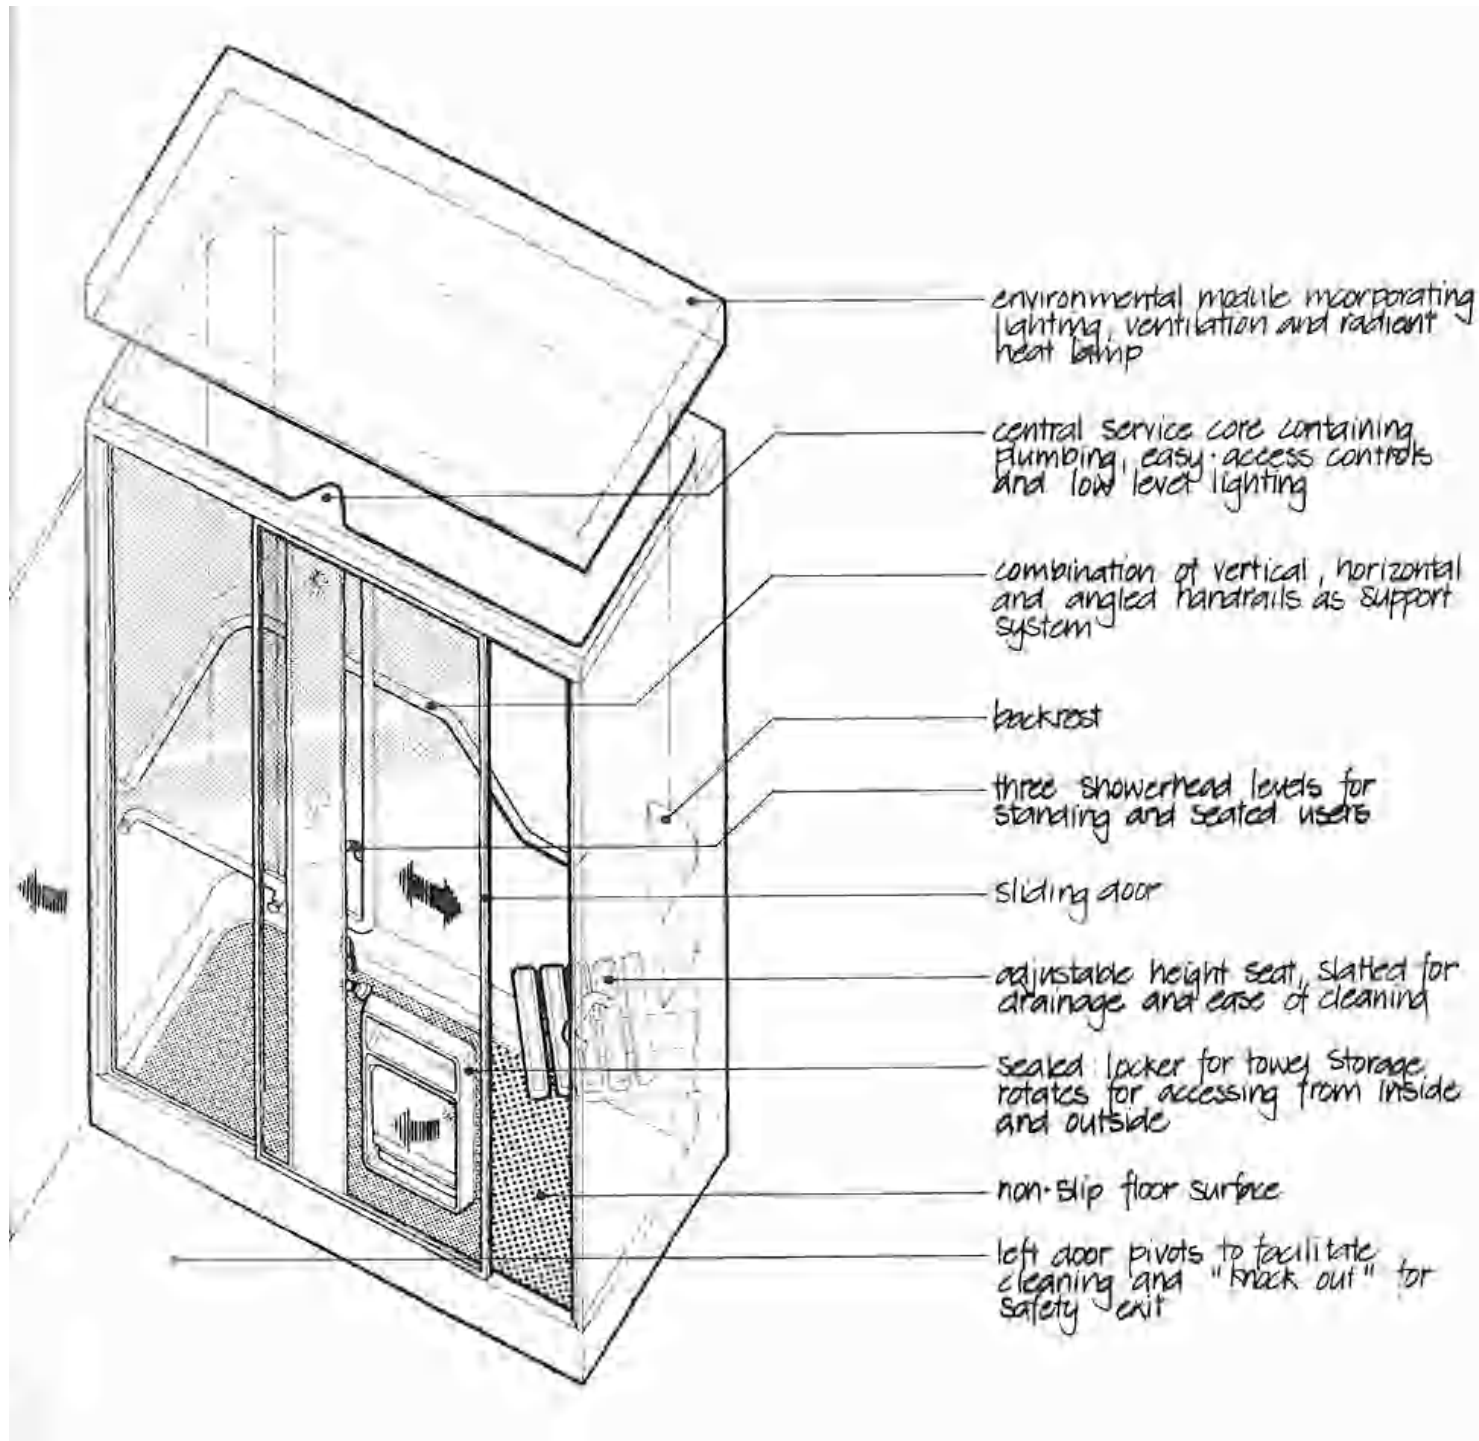 environmental module incorporating
lighting, ventilation and radient
heat lamp
central service core containing
plumbing, easy-access controls
and low level lighting
combination of vertical, horizontal
and angled handrails as support
system
backrest
three showerhead levels for
standing and seated users
sliding door
adjustable height seat, slatted for
drainage and ease of cleaning
sealed locker for towel storage,
rotates for accessing from inside
and outside
non-slip floor surface
left door pivots to facilitate
cleaning and "knock out" for
safety exit